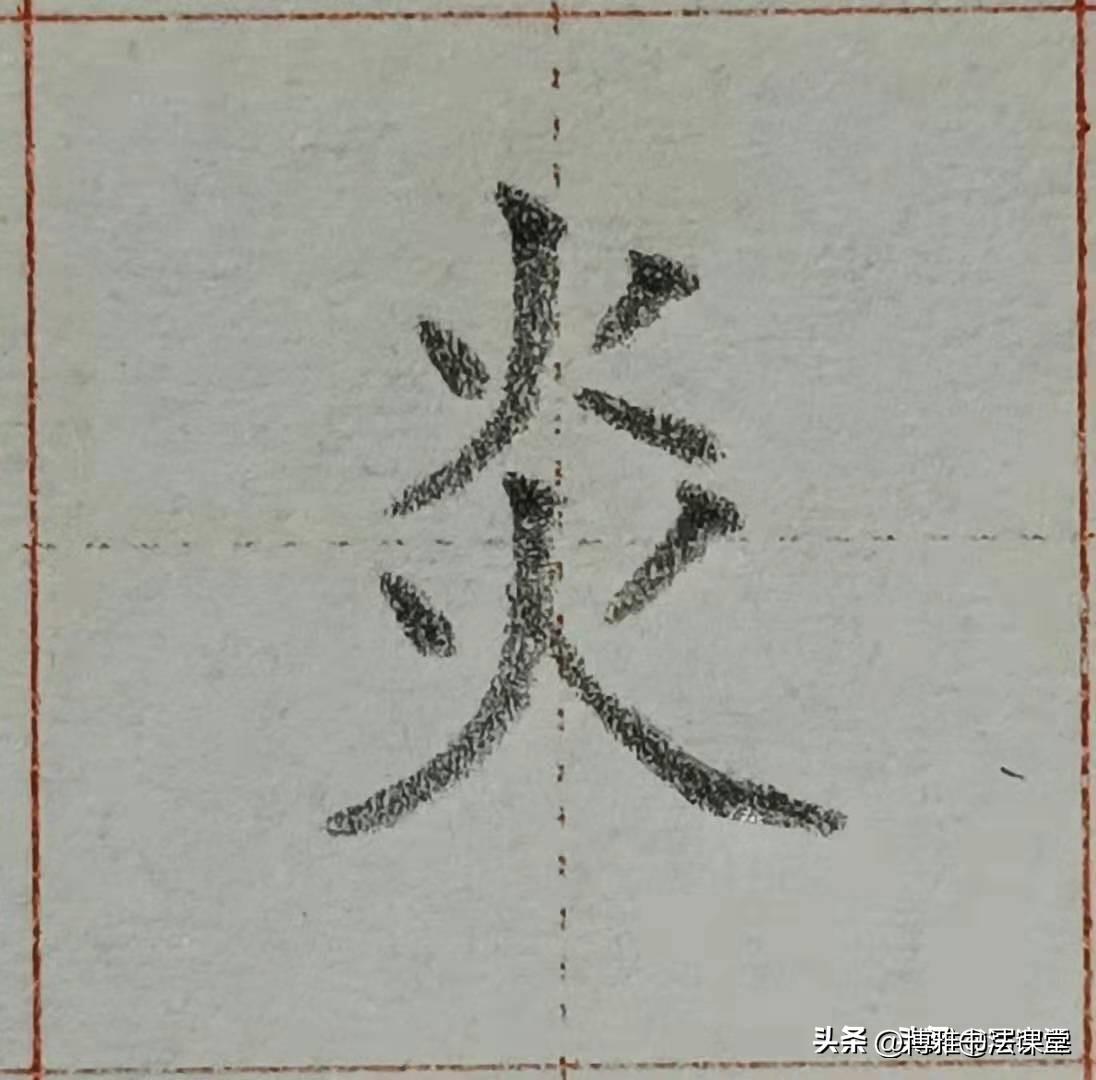 炎
头条 @博雅书法课堂